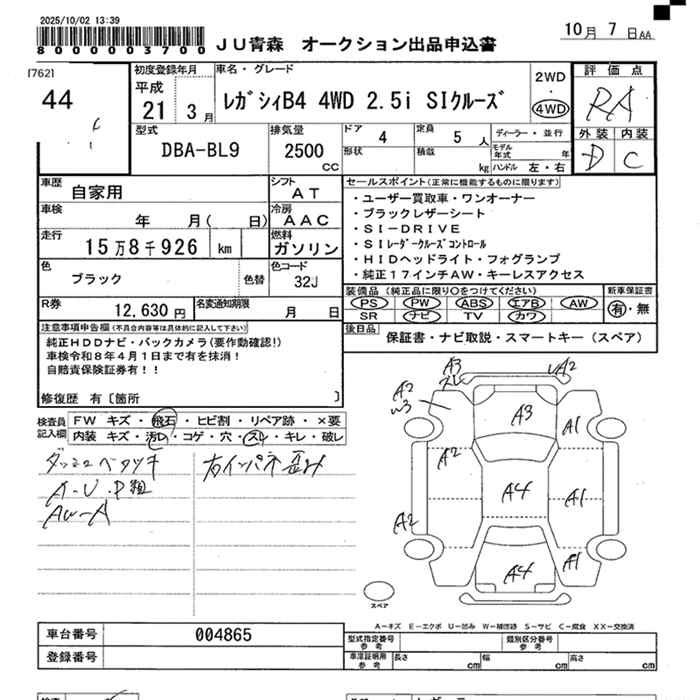 2025/10/02 13:39
8000003700
JU青森 オークション出品申込書
10月 7日AA
[762]
44
初度登録年月
平成
21 3月
車名・グレード
レガシィB4 4WD 2.5i SIクルーズ
2WD
・
4WD
評価点
RA
外装 内装
D C
型式
DBA-BL9
排気量
2500
CC
ドア 4
形状
定員 5 人
積載 kg
ディーラー・並行
モデル年式 年
ハンドル 左・右
車歴
自家用
シフト
AT
車検
年 月( 日)
冷房
AAC
走行
15万8千926 km
燃料
ガソリン
色
ブラック
色替
色コード
32J
R券
12,630円
名変通知期限
月 日
セールスポイント(正常に機能するものに限ります)
・ユーザー買取車・ワンオーナー
・ブラックレザーシート
・SI-DRIVE
・SIレーダークルーズコントロール
・HIDヘッドライト・フォグランプ
・純正17インチAW・キーレスアクセス
装備品(純正品に限り○をつけてください)
PS PW ABS エアB AW
SR ナビ TV カワ
新車保証書
有・無
後日品
保証書・ナビ取説・スマートキー(スペア)
注意事項申告欄(不具合内容等は具体的に記入して下さい)
純正HDDナビ・バックカメラ(要作動確認!)
車検令和8年4月1日まで有を抹消!
自賠責保険証券有!!
修復歴 有〔箇所 〕
検査員記入欄
FW キズ・飛石・ヒビ割・リペア跡・×要
内装 キズ・汚レ・コゲ・穴・スレ・キレ・破レ
A-U.P粗
AW-A
右インパネ歪み
A3
スレ
A2
A2
W3
A3
A1
A2
A4
A1
A2
A4
A1
スペア
A-キズ E-エクボ U-凹み W-補修跡 S-サビ C-腐食 XX-交換済
車台番号
004865
登録番号
型式指定番号
参考
類別区分番号
参考
車庫証明用
参考
長さ cm
幅 cm
高さ cm